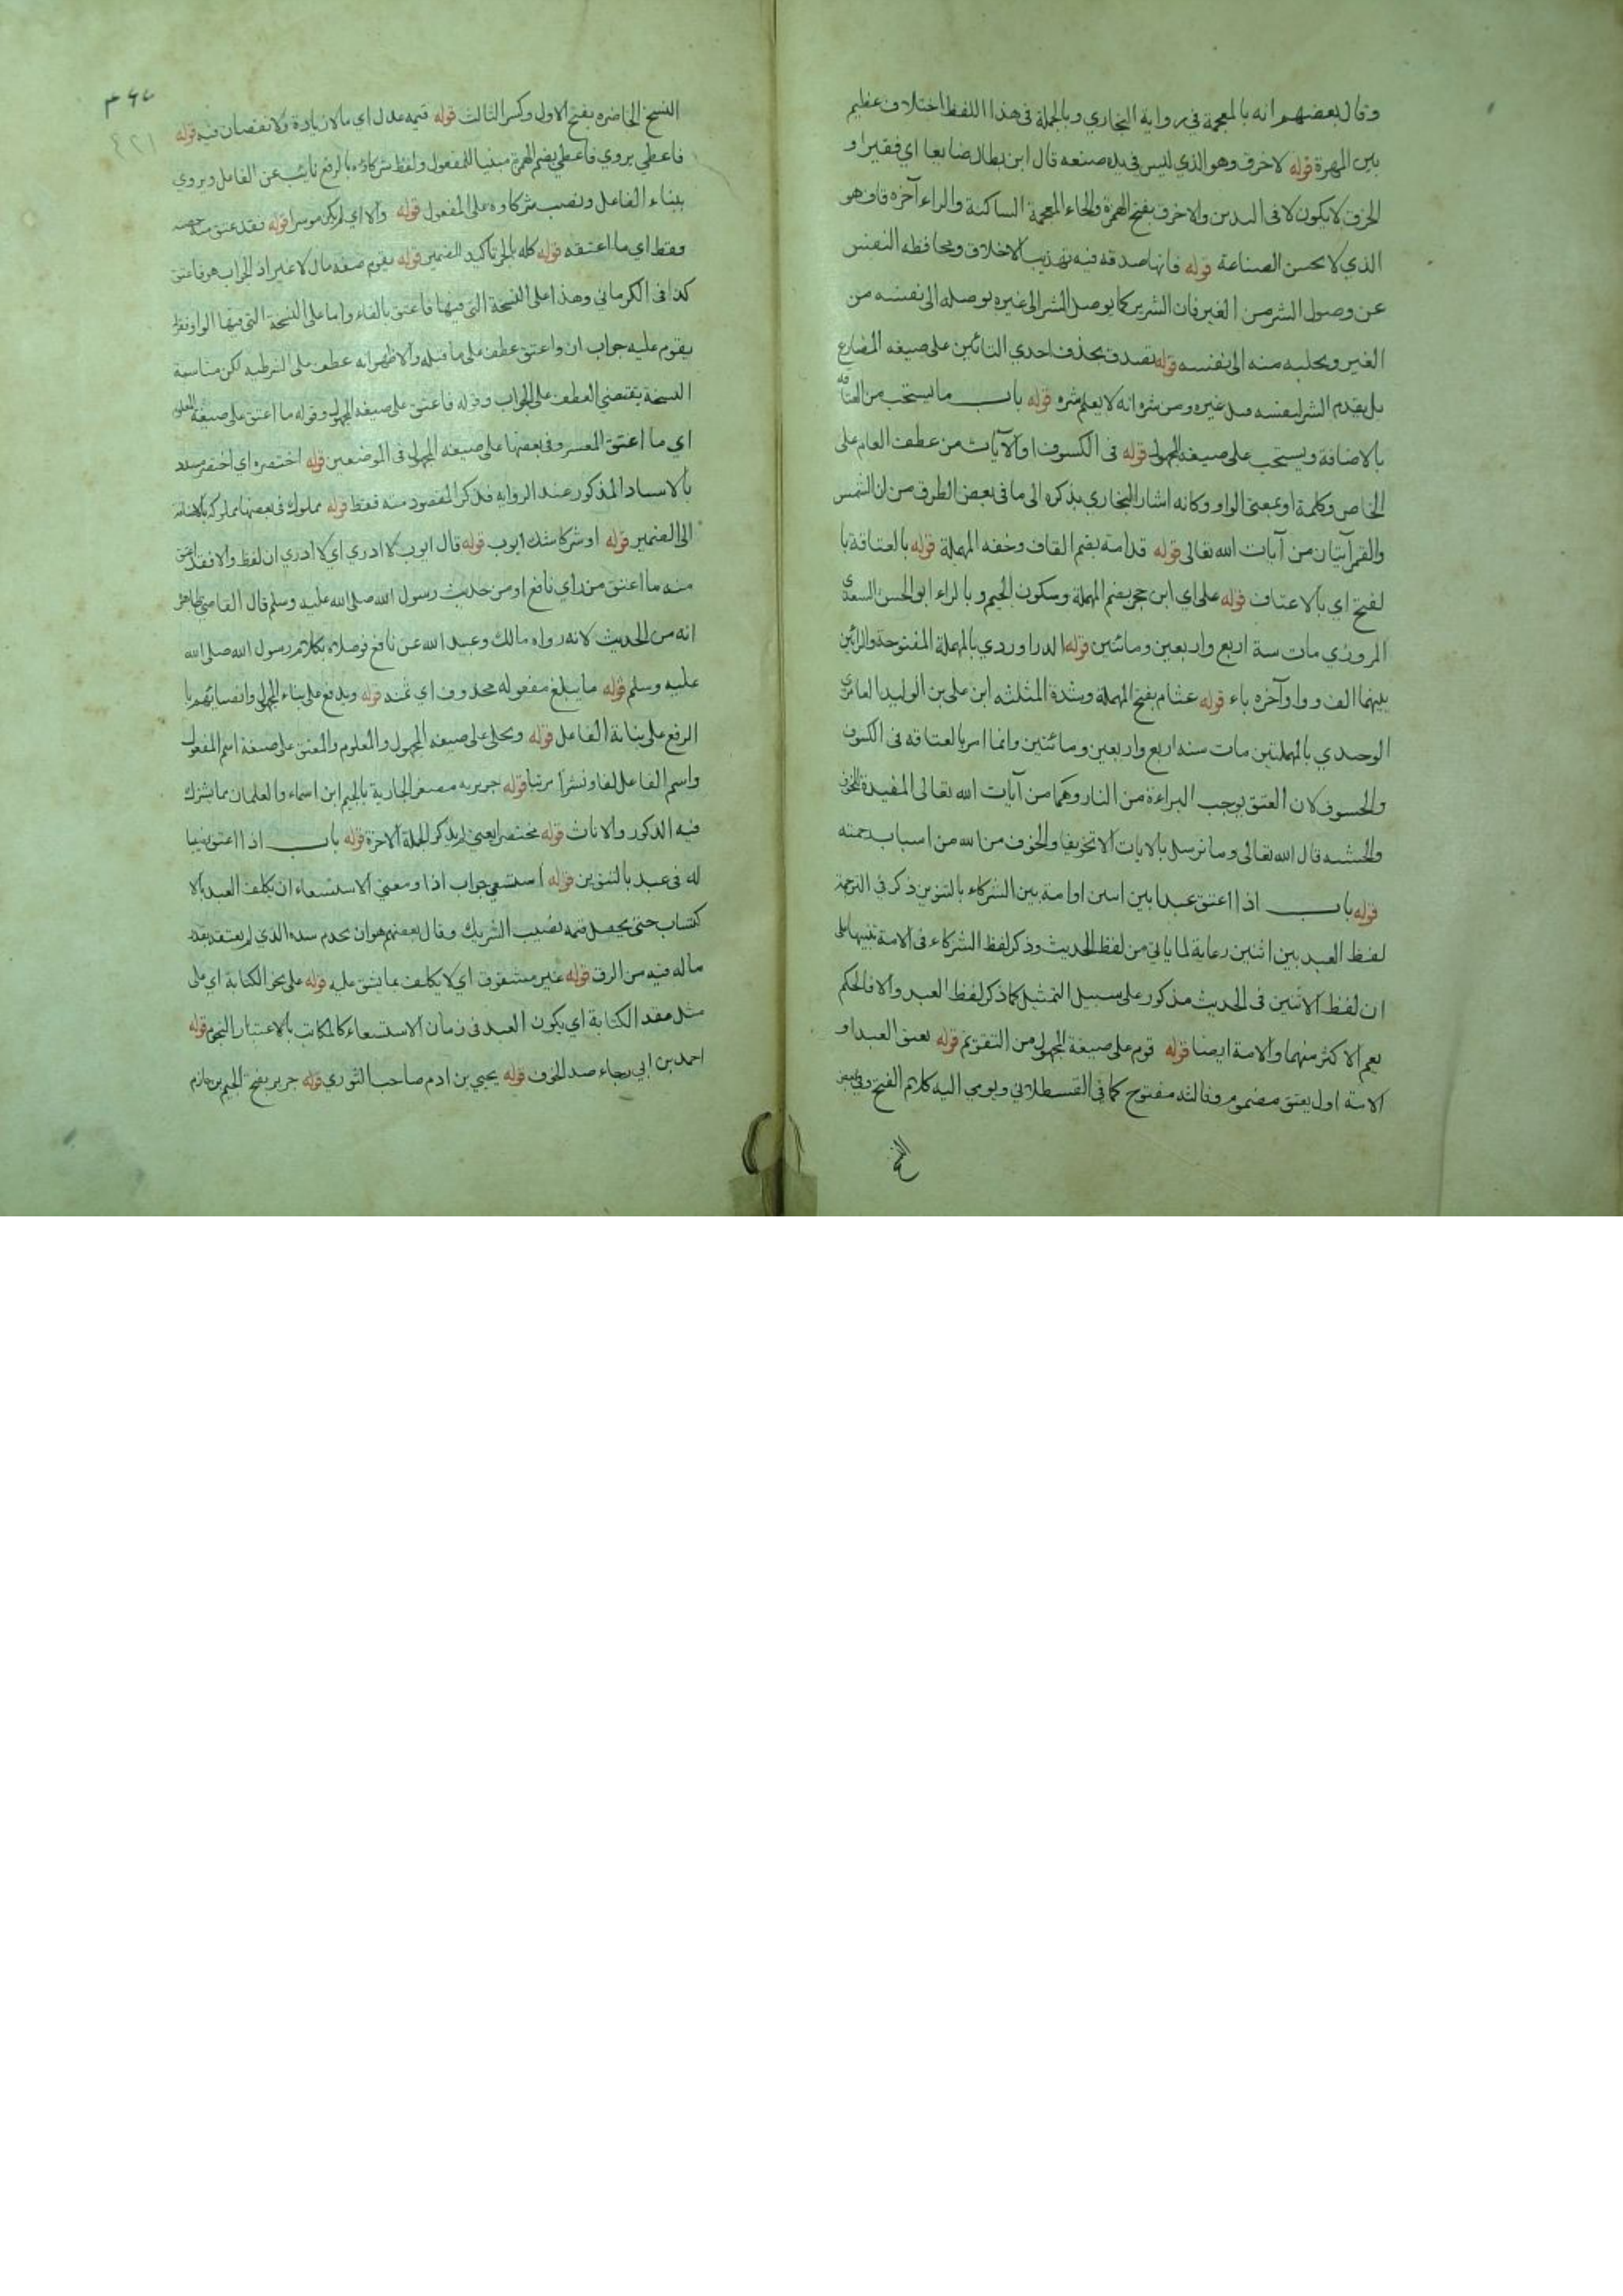 وقال بعضهم انه بالمعجمة في رواية البخاري وبالجملة في هذا اللفظ اختلاف عظيم
بين المهرة قوله لاخرق وهو الذي ليس في يده صنعه قال ابن بطال ضايعا اي فقيرا و
الخرق لا يكون لا في البدن والاخرق بفتح الهمزة والخاء المعجمة الساكنة والراء آخره قاف هو
الذي لا يحسن الصناعة قوله فانها صدقه فيه تهذيب الاخلاق ومحافظه النفس
عن وصول الشر من الغير فان الشرير كما يوصل الشر الى غيره يوصله الى نفسه من
الغير ويجلبه منه الى نفسه قوله تصدق بحذف احدي التائين على صيغه المضارع
بل يقدم الشر لنفسه قبل غيره ومن شره انه لا يعلم شره قوله باب ما يستحب من العتاقه
بالاضافة ويستحب على صيغه المجهول قوله في الكسوف او الآيات من عطف العام على
الخاص وكلمة او بمعنى الواو وكانه اشار البخاري بذكره الى ما في بعض الطرق من ان الشمس
والقمر آيتان من آيات الله تعالى قوله قدامة بضم القاف وخفه المهملة قوله بالعتاقة با
لفتح اي بالاعتاق قوله على اي ابن حجر بضم المهملة وسكون الجيم وبالراء ابو الحسن السعدي
المروزي مات سنة اربع واربعين ومائتين قوله الدراوردي بالمهملة المفتوحة والرائين
بينهما الف وواو آخره ياء قوله عثام بفتح المهملة وشدة المثلثه ابن علي بن الوليد العامري
الوحيدي بالمهملتين مات سنه اربع واربعين ومائتين وانما امر بالعتاقه في الكسوف
والخسوف لان العتق يوجب البراءة من النار وهما من آيات الله تعالى المفيدة للخوف
والخشيه قال الله تعالى وما نرسل بالايات الا تخويفا والخوف من الله من اسباب رحمته
قوله باب اذا اعتق عبدا بين اثنين او امة بين الشركاء بالتنوين ذكر في الترجمة
لفظ العبد بين اثنين رعاية لما ياتي من لفظ الحديث وذكر لفظ الشركاء في الامة تنبيها على
ان لفظ الاثنين في الحديث مذكور على سبيل التمثيل كما ذكر لفظ العبد والا فالحكم
يعم الاكثر منهما والامة ايضا قوله قوم على صيغة المجهول من التقويم قوله يعتق العبد او
الامة اول يعتق مضموم وثالثه مفتوح كما في القسطلاني ويومي اليه كلام الفتح وفي بعض
النسخ
النسخ الحاضره بفتح الاول وكسر الثالث قوله قيمه عدل اي بلا زيادة ولا نقصان فيه قوله
فاعطي يروي فاعطي بضم الهمزة مبنيا للمفعول ولفظ شركاؤه بالرفع نايب عن الفاعل ويروي
ببناء الفاعل ونصب شركاوه على المفعول قوله والا اي لم يكن موسرا قوله فقد عتق منه حصته
فقط اي ما اعتقه قوله كله بالجر تاكيد الضمير قوله يقوم صفه مال لا غير اذ الجواب هو فاعتق
كذا في الكرماني وهذا على النسخة التي فيها فاعتق بالفاء واما على النسخة التي فيها الواو فقوله
يقوم عليه جواب ان واعتق عطف على ما قبله والاظهر انه عطف على الشرطيه لكن مناسبة
النسخة يقتضي العطف على الجواب وقوله فاعتق على صيغه المجهول وقوله ما اعتق على صيغة المعلوم
اي ما اعتق المعسر وفي بعضها على صيغه المجهول في الموضعين قوله اختصره اي اختصر مسدد
بالاسناد المذكور عند الروايه فذكر المقصود منه فقط قوله مملوك في بعضها مملوكه بالاضافة
الى الضمير قوله او شركا شك ايوب قوله قال ايوب لا ادري اي لا ادري ان لفظ والا فقد عتق
منه ما اعتق من راي نافع او من حديث رسول الله صلى الله عليه وسلم قال القاضي ظاهر
انه من الحديث لانه رواه مالك وعبيد الله عن نافع فوصلاه بكلام رسول الله صلى الله
عليه وسلم قوله ما يبلغ مفعوله محذوف اي ثمنه قوله ويدفع على بناء المجهول وانصباؤهم با
الرفع على نيابة الفاعل قوله ويخلي على صيغه المجهول والمعلوم والمعتق على صيغة اسم المفعول
واسم الفاعل لفا ونشرا مرتبا قوله جويريه مصغر الجارية بالجيم ابن اسماء والعلمان مما يشترك
فيه الذكور والاناث قوله مختصرا يعني لم يذكر الجملة الاخرة قوله باب اذا اعتق نصيبا
له في عبد بالتنوين قوله استسعي جواب اذا ومعني الاستسعاء ان يكلف العبد بالا
كتساب حتى يحصل قيمه نصيب الشريك وقال بعضهم هو ان يخدم سيده الذي لم يعتقه بقدر
ماله فيه من الرق قوله غير مشقوق اي لا يكلف بما يشق عليه قوله على نحو الكتابة اي على
مثل عقد الكتابة اي يكون العبد في زمان الاستسعاء كالمكاتب بالاعتبار النجوم قوله
احمد بن ابي رجاء ضد الخوف قوله يحيي بن ادم صاحب الثوري قوله جرير بفتح الجيم بن حازم
٤٢١